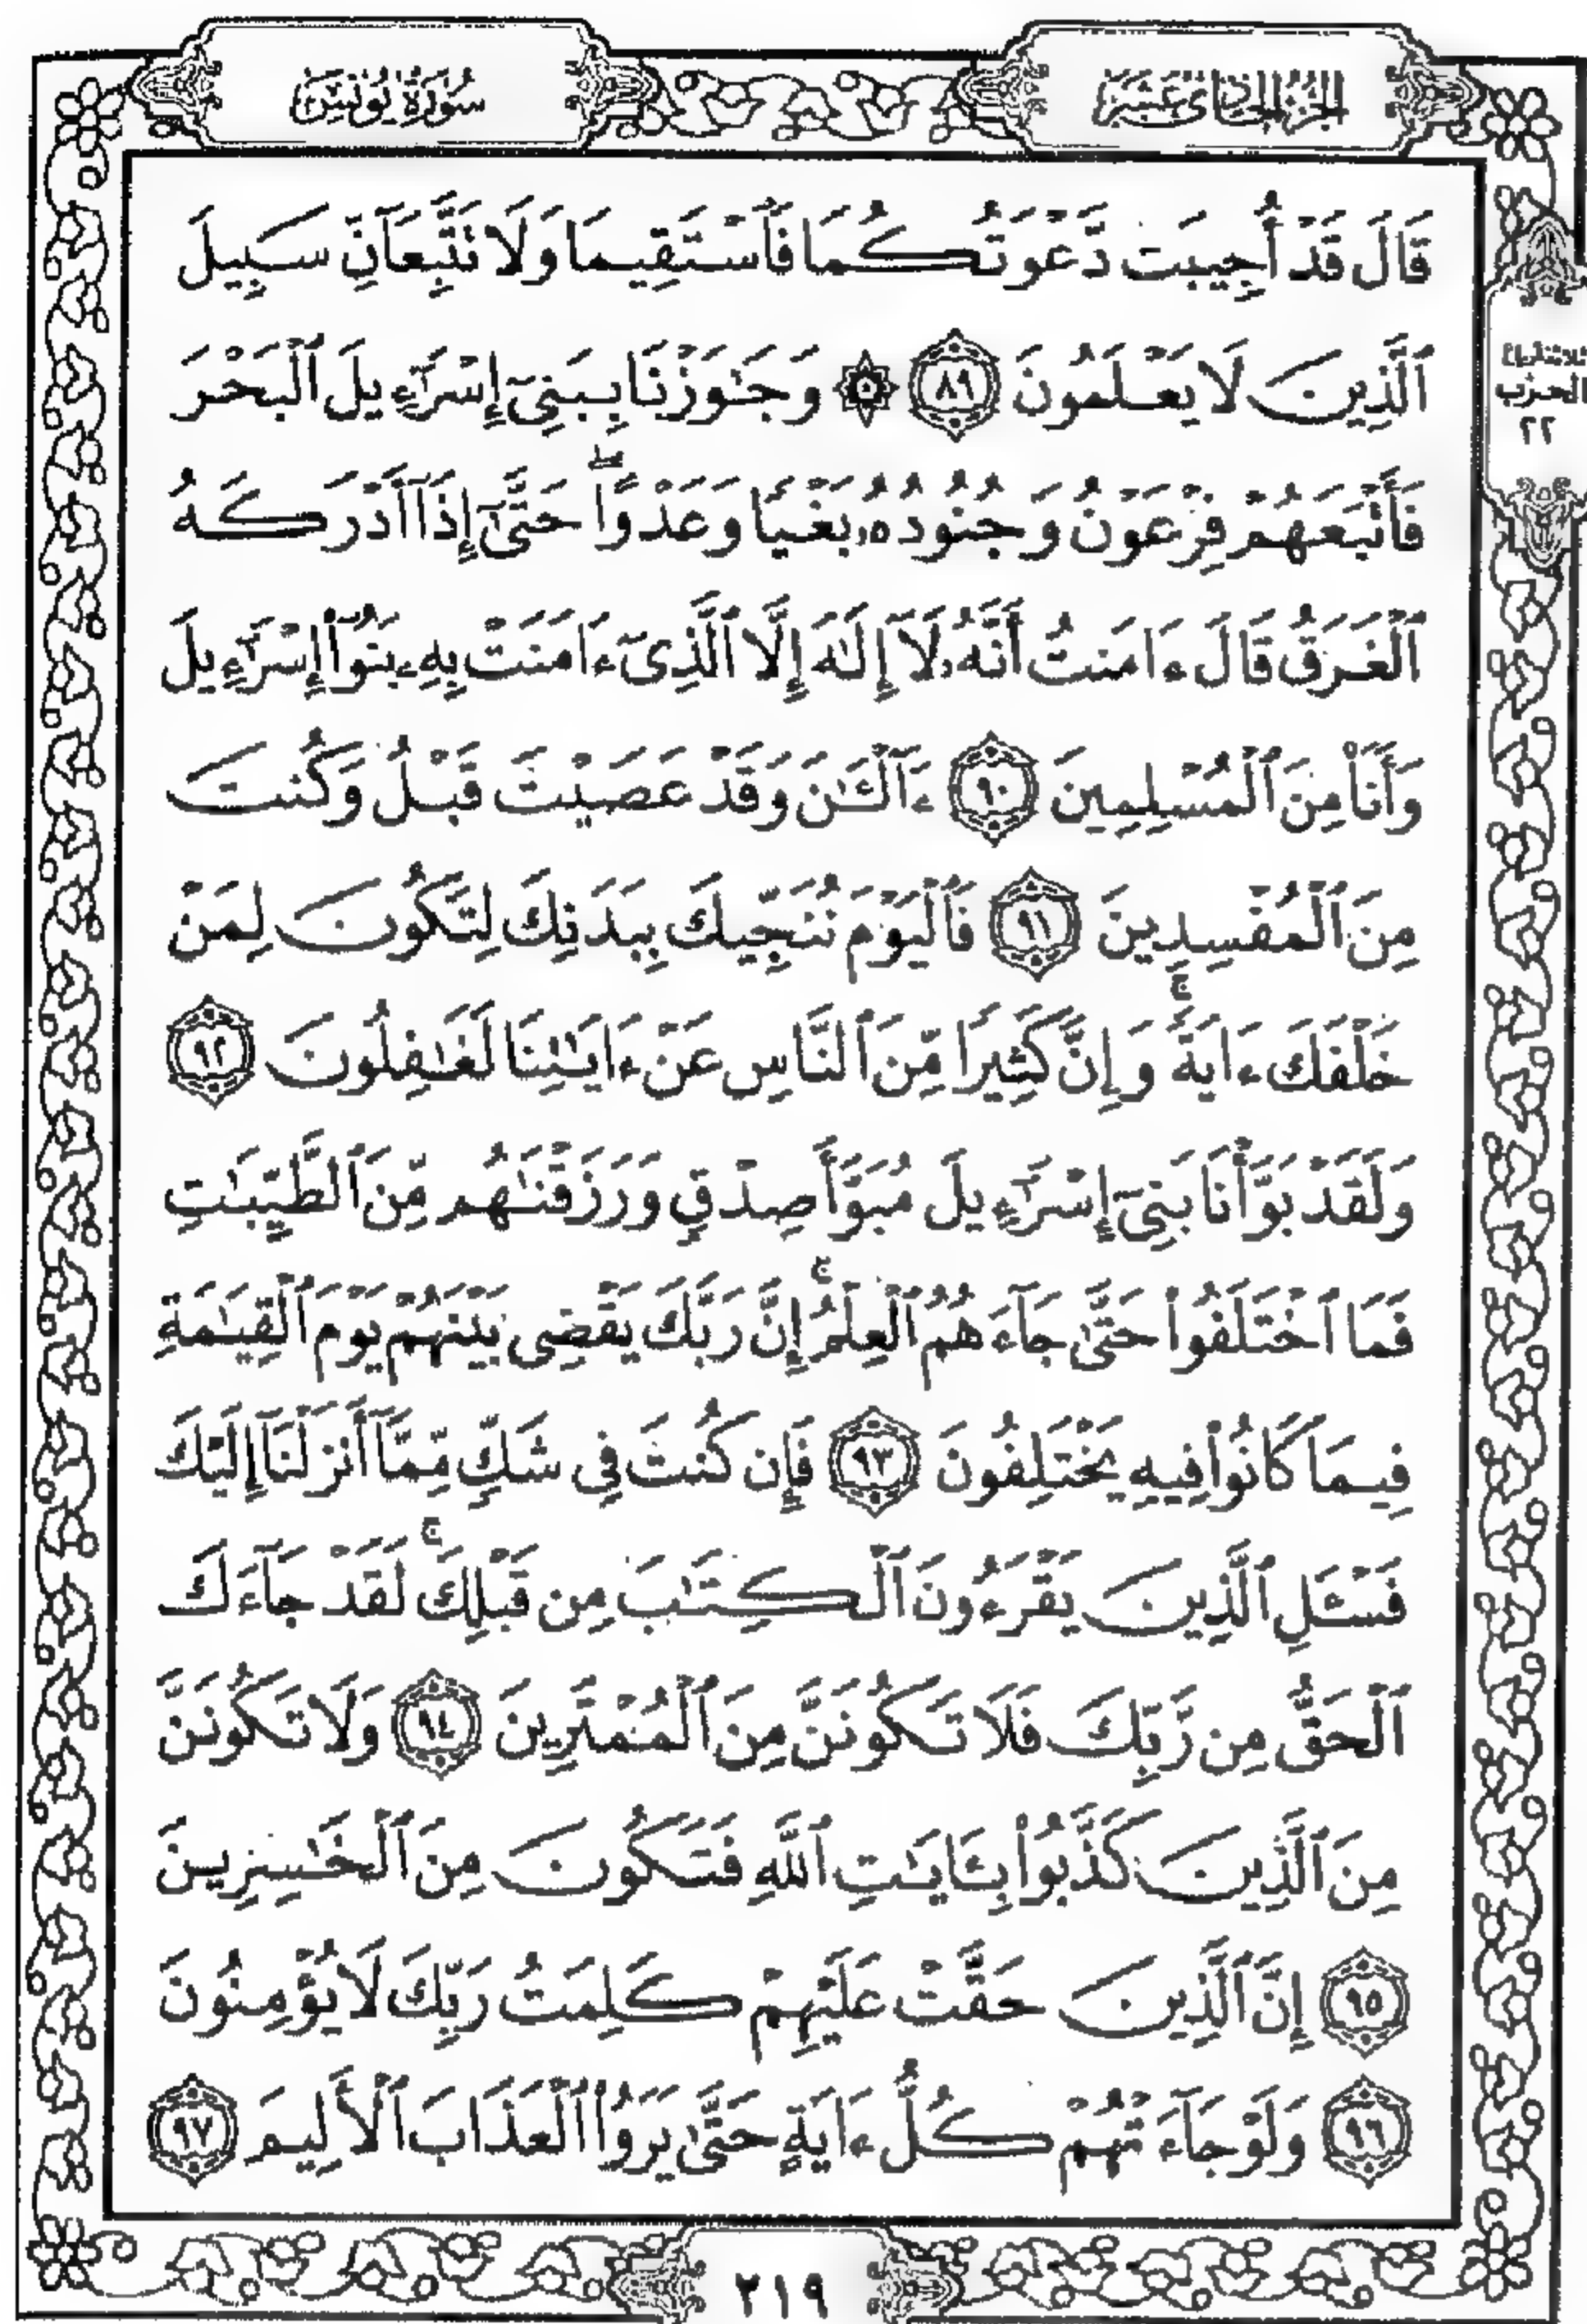 الجزء الحادي عشر
سورة يونس
قَالَ قَدْ أُجِيبَت دَّعْوَتُكُمَا فَٱسْتَقِيمَا وَلَا تَتَّبِعَآنِّ سَبِيلَ
ٱلَّذِينَ لَا يَعْلَمُونَ ٨٩ ۞ وَجَٰوَزْنَا بِبَنِىٓ إِسْرَٰٓءِيلَ ٱلْبَحْرَ
فَأَتْبَعَهُمْ فِرْعَوْنُ وَجُنُودُهُۥ بَغْيًا وَعَدْوًا ۖ حَتَّىٰٓ إِذَآ أَدْرَكَهُ
ٱلْغَرَقُ قَالَ ءَامَنتُ أَنَّهُۥ لَآ إِلَٰهَ إِلَّا ٱلَّذِىٓ ءَامَنَتْ بِهِۦ بَنُوٓا۟ إِسْرَٰٓءِيلَ
وَأَنَا۠ مِنَ ٱلْمُسْلِمِينَ ٩٠ ءَآلْـَٰٔنَ وَقَدْ عَصَيْتَ قَبْلُ وَكُنتَ
مِنَ ٱلْمُفْسِدِينَ ٩١ فَٱلْيَوْمَ نُنَجِّيكَ بِبَدَنِكَ لِتَكُونَ لِمَنْ
خَلْفَكَ ءَايَةً ۚ وَإِنَّ كَثِيرًا مِّنَ ٱلنَّاسِ عَنْ ءَايَٰتِنَا لَغَٰفِلُونَ ٩٢
وَلَقَدْ بَوَّأْنَا بَنِىٓ إِسْرَٰٓءِيلَ مُبَوَّأَ صِدْقٍ وَرَزَقْنَٰهُم مِّنَ ٱلطَّيِّبَٰتِ
فَمَا ٱخْتَلَفُوا۟ حَتَّىٰ جَآءَهُمُ ٱلْعِلْمُ ۚ إِنَّ رَبَّكَ يَقْضِى بَيْنَهُمْ يَوْمَ ٱلْقِيَٰمَةِ
فِيمَا كَانُوا۟ فِيهِ يَخْتَلِفُونَ ٩٣ فَإِن كُنتَ فِى شَكٍّ مِّمَّآ أَنزَلْنَآ إِلَيْكَ
فَسْـَٔلِ ٱلَّذِينَ يَقْرَءُونَ ٱلْكِتَٰبَ مِن قَبْلِكَ ۚ لَقَدْ جَآءَكَ
ٱلْحَقُّ مِن رَّبِّكَ فَلَا تَكُونَنَّ مِنَ ٱلْمُمْتَرِينَ ٩٤ وَلَا تَكُونَنَّ
مِنَ ٱلَّذِينَ كَذَّبُوا۟ بِـَٔايَٰتِ ٱللَّهِ فَتَكُونَ مِنَ ٱلْخَٰسِرِينَ
٩٥ إِنَّ ٱلَّذِينَ حَقَّتْ عَلَيْهِمْ كَلِمَتُ رَبِّكَ لَا يُؤْمِنُونَ
٩٦ وَلَوْ جَآءَتْهُمْ كُلُّ ءَايَةٍ حَتَّىٰ يَرَوُا۟ ٱلْعَذَابَ ٱلْأَلِيمَ ٩٧
ثلاثة أرباع
الحزب
٢٢
٢١٩